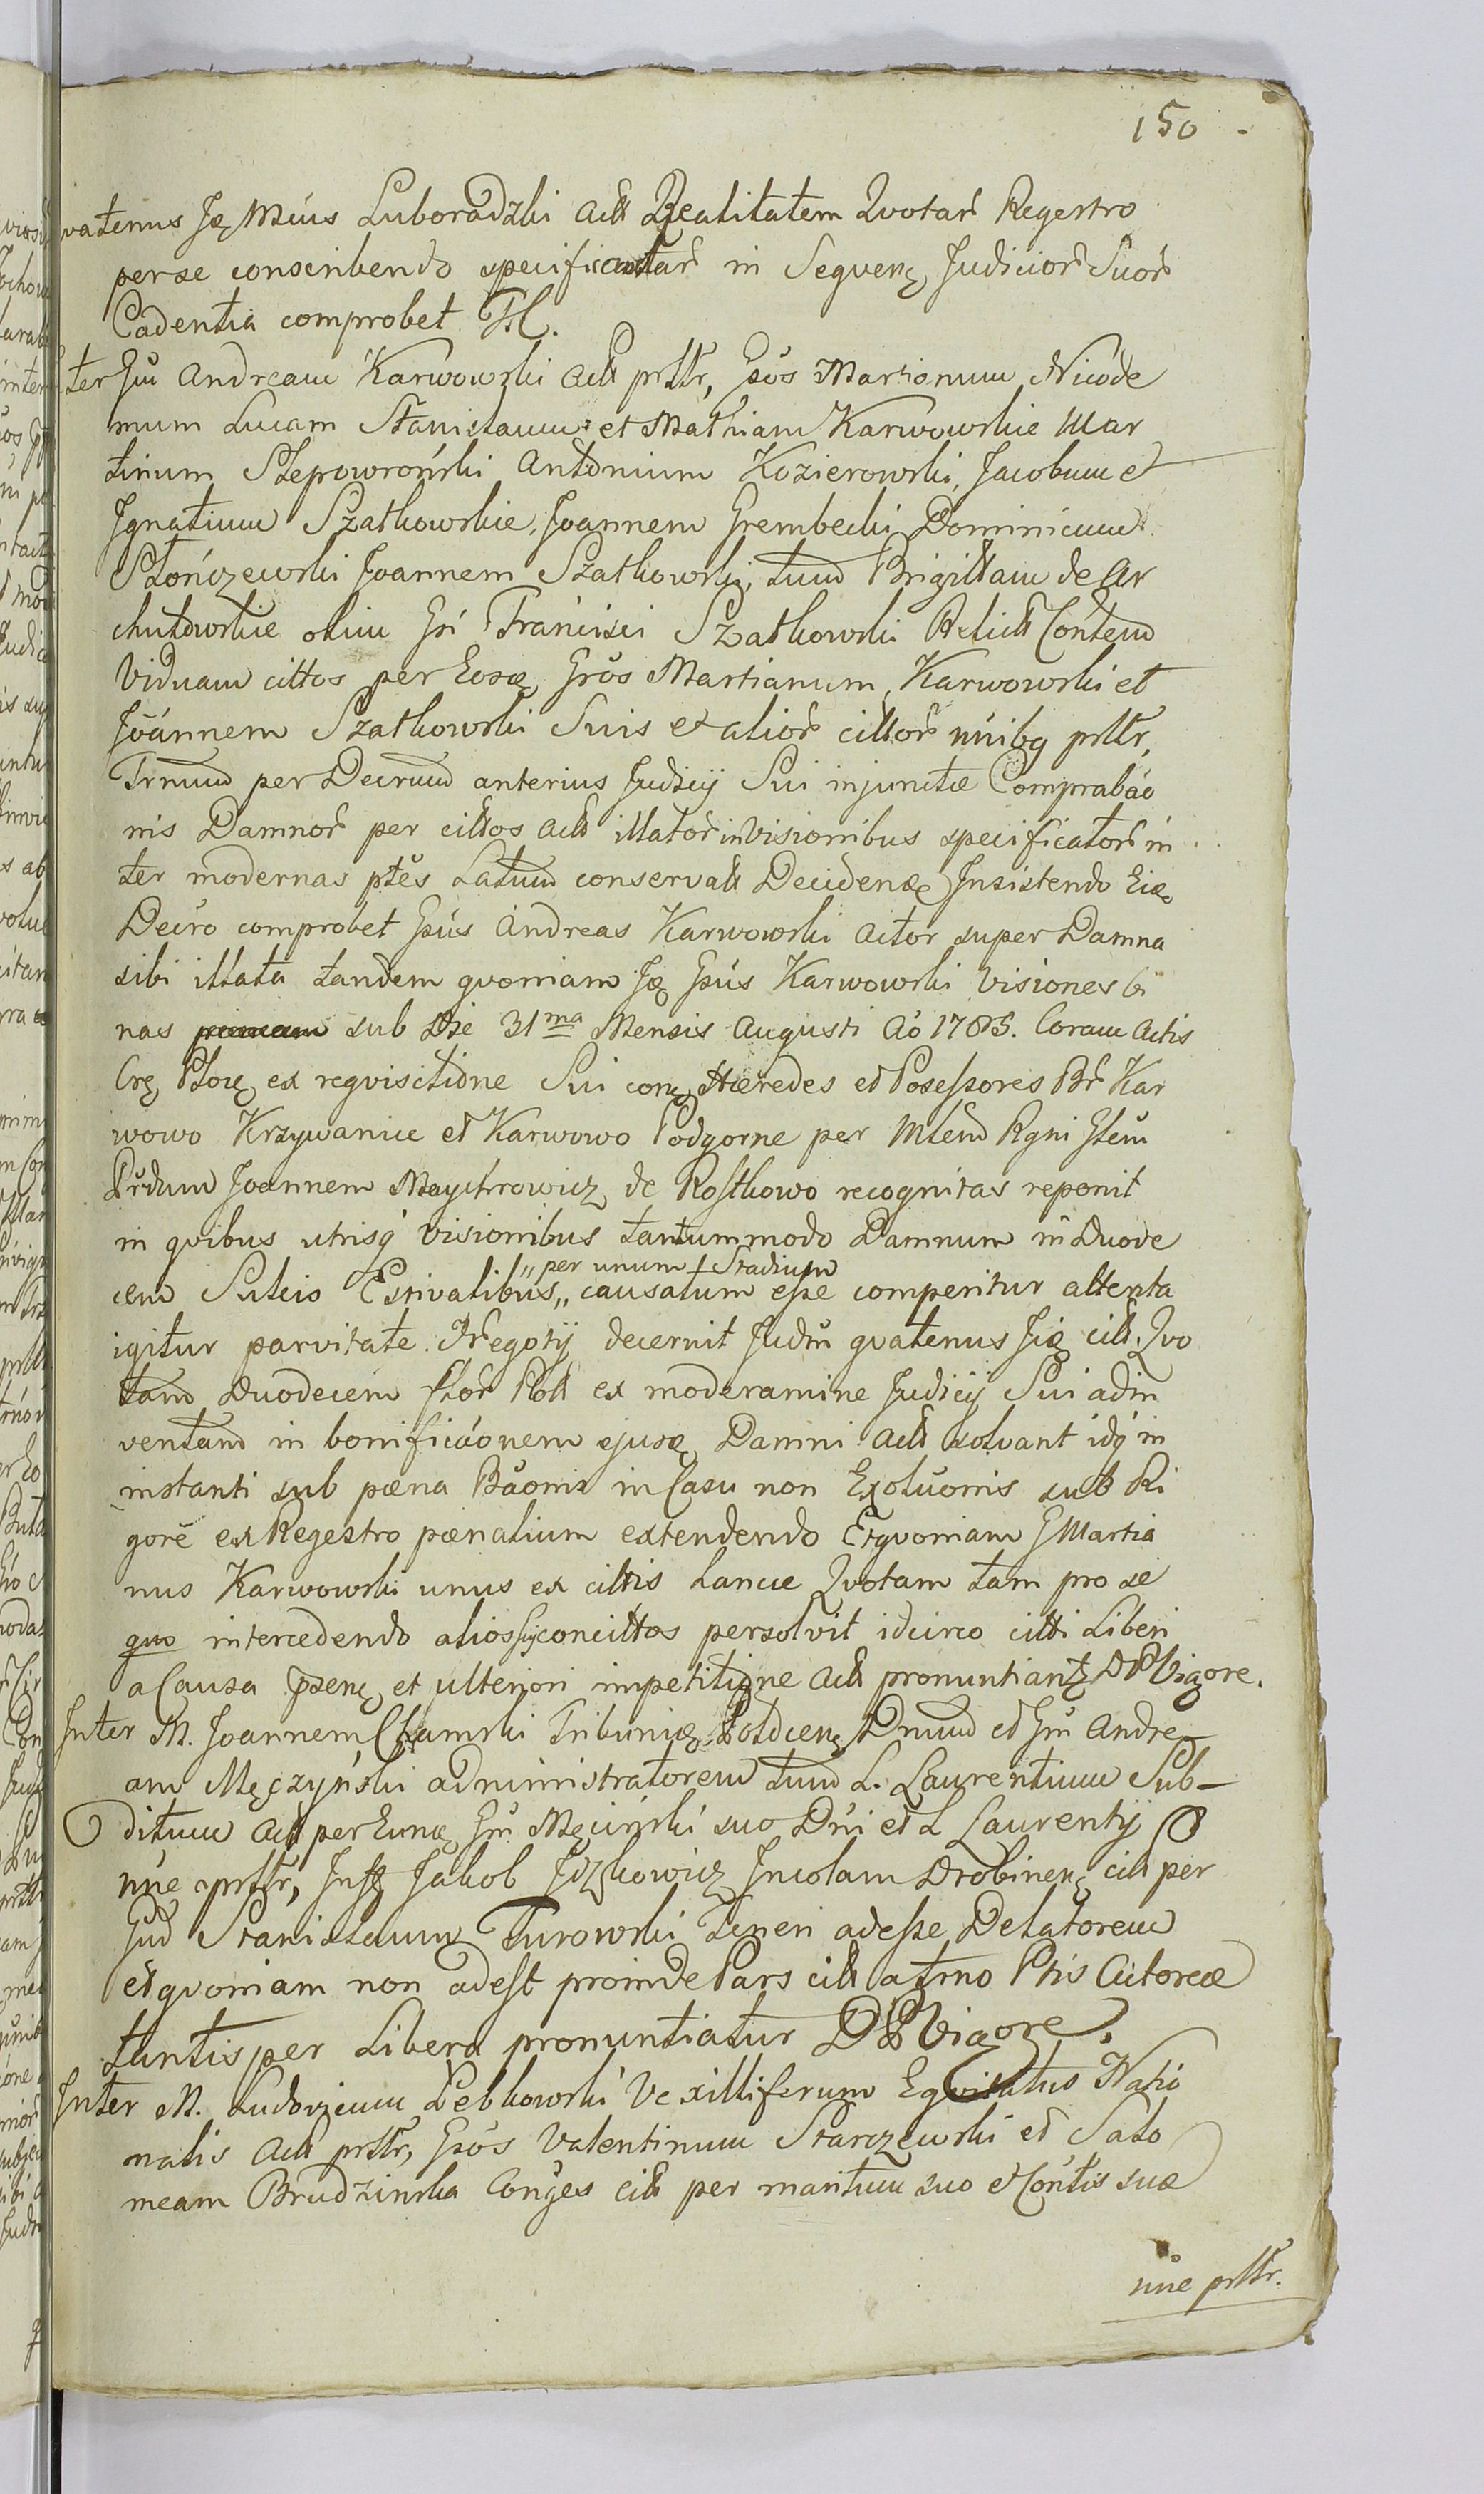 150
vatenus Ję Mcús Luboradzki actt Realitatem Qvotarś Regestro
perse conscribendo specificatarś in Seqvenę Judiciorś Suorś
Cadentia comprobet Ttt.
ter Gm̃ Andream Karwowski actt prttr, Gsõs Martianum Nicode
mum Lucam Stanislaum et Mathiam Karwowskie Mar
tinum Slepowroński Antonium Kozierowski, Jacobum et
Ignatium Szatkowskie, Joannem Grembecki Dominicum
Słończewski Joannem Szatkowski, tum Brigittam de Ar
chutowskie olim Gsi Francisci Szatkowski Relictt Contem
Viduam cittos per Eosę Grõs Martianum Karwowski et
Joannem Szatkowski Suis et aliorś cittorś nñibg prttr,
Trnum per Decrum anterius Judicij Sui injunctæ Comprabão
nis Damnorś per cittos actt illatorś in Visionibus specificatorś in
ter modernas ptes Latum conservatt Decidenæ Insistendo Eię
Decro comprobet Gsús Andreas Karwowski actor super Damna
sibi illata tandem qvoniam Ję Gsús Karwowski Visiones bi
nas sub Die 31ma Mensis Augusti Aó 1785. Coram Actis
Crę Plocę ex reqvisitione Sui conę Hæredes et Possessores Br Kar
wowo Krzywanice et Karwowo Podgorne per Mtem Rgni Glem
Prdum Joannem Maychrowicz de Rostkowo recognitas reponit
in qvibus utrisq visionibus tantummodo Damnum in Duode
„per unum Stadium
cem Sulcis Estivalibus„ causatum esse comperitur attenta
igitur parvitate Negotij decernit Judm̃ qvatenus Jię citt. Qvo
tam Duodecem flor Poll ex moderamine Judicij Sui adin
ventam in bonificãonem ejusę Damni actt solvant idq in
instanti sub pæna Bãonis in Casu non Exolũonis sub Ri
gore ex Regestro pænalium extendendo Etqvoniam G Martia
nus Karwowski unus ex cittis hancce Qvotam tam pro se
quo intercedendo alios sij concittos persolvit idcirco citti Liberi
a Causa psenę et ulteriori impetitione actt pronuntiantr D P Vigore.
Inter M. Joannem Chamski Tribunię Plocenę Dnum et Gm̃ Andre
am Męczyński administratorem tum L. Laurentium Sub-
ditum actt per Eunę Gm̃ Męciński suo Dńi et L Laurentij
nñe prttr, Infę Jakob Iczkowicz Incolam Drobinenę citt per
Gud Stanislaum Turowski Teneri adesse Delatorem
et qvoniam non adest proinde Pars citt a trno Ptis Actoreæ
tantisper Libera pronuntiatur D P Vigore.
Inter M. Ludovicum Lebkowski Vexilliferum Eqvitatus Natio
nalis actt prttr, Gsõs Valentinum Starczewski et Salo
meam Brudzinska Conges citt per maritum suo et Contis suæ
nñe prttr.